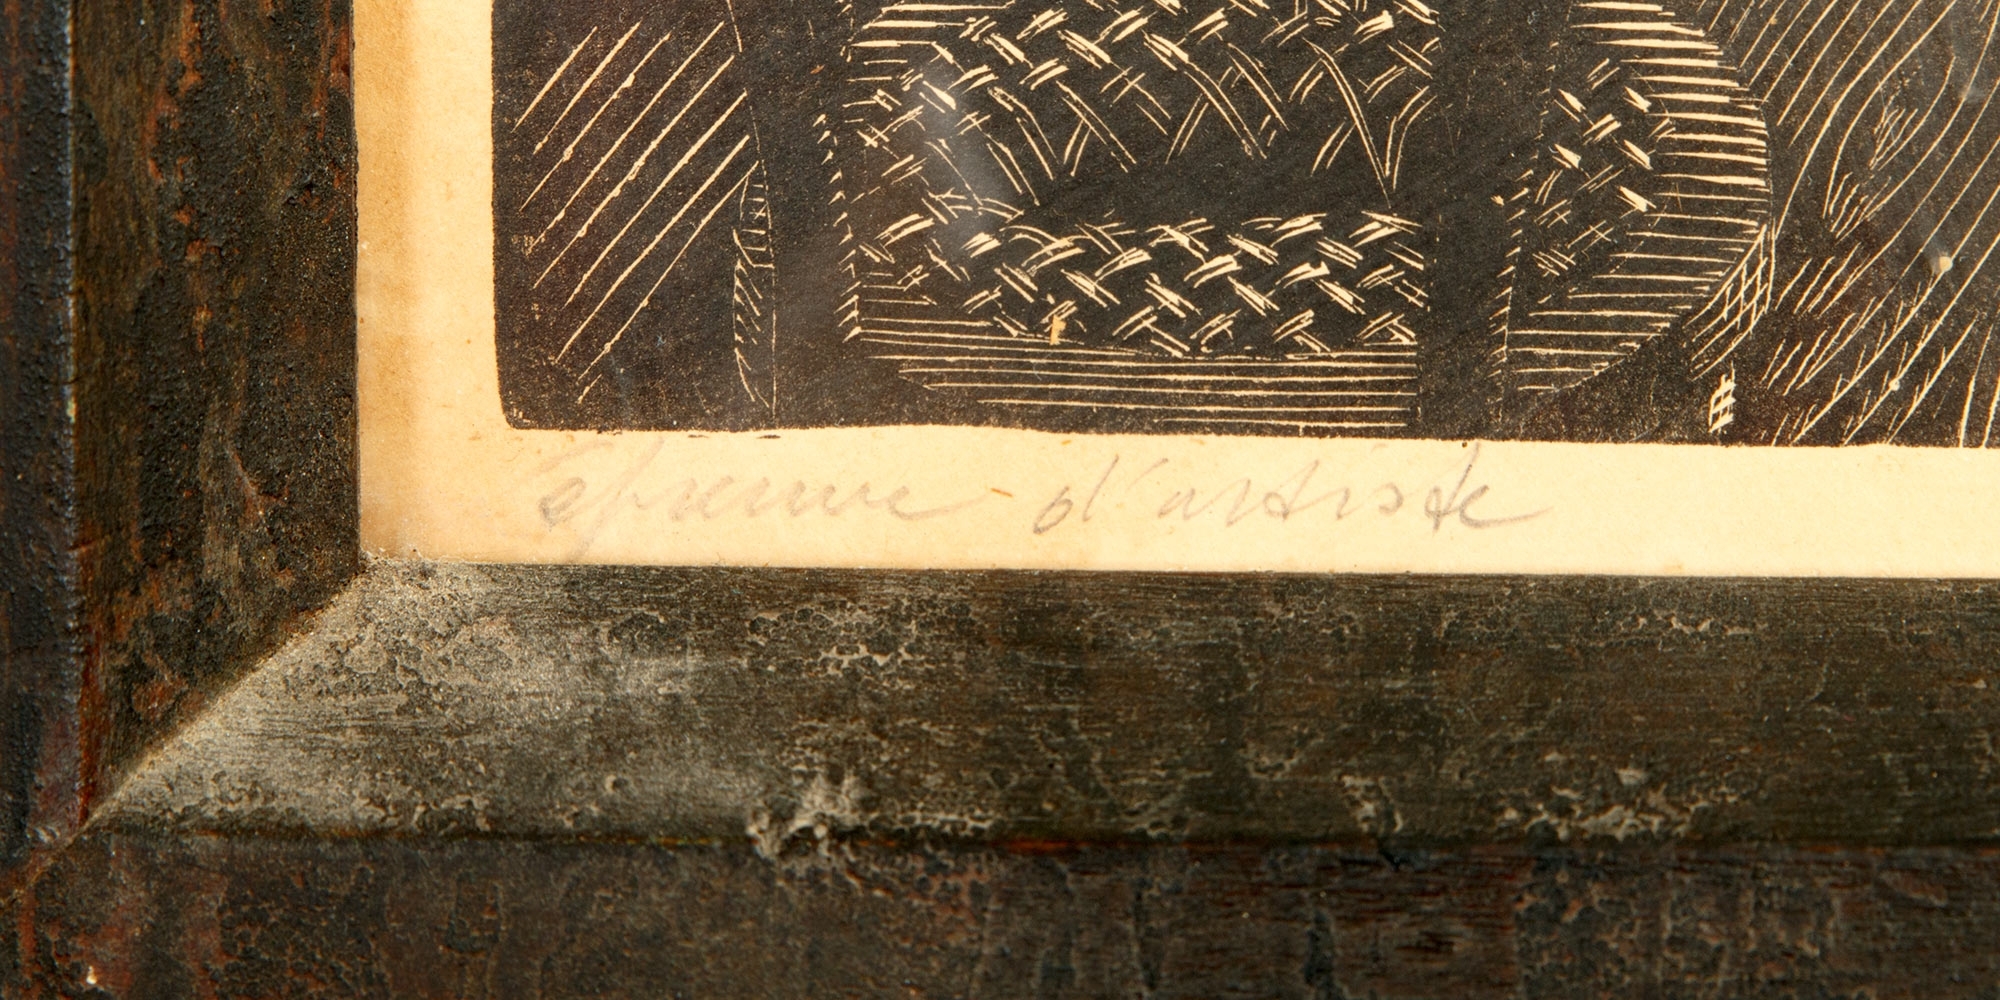 épreuve d'artiste